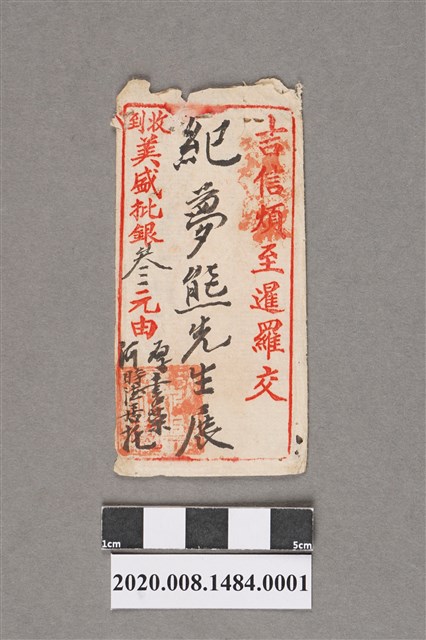 吉信煩至暹羅交
紀夢熊先生展
收到美盛批銀叁元由
托
1cm 5cm
2020.008.1484.0001